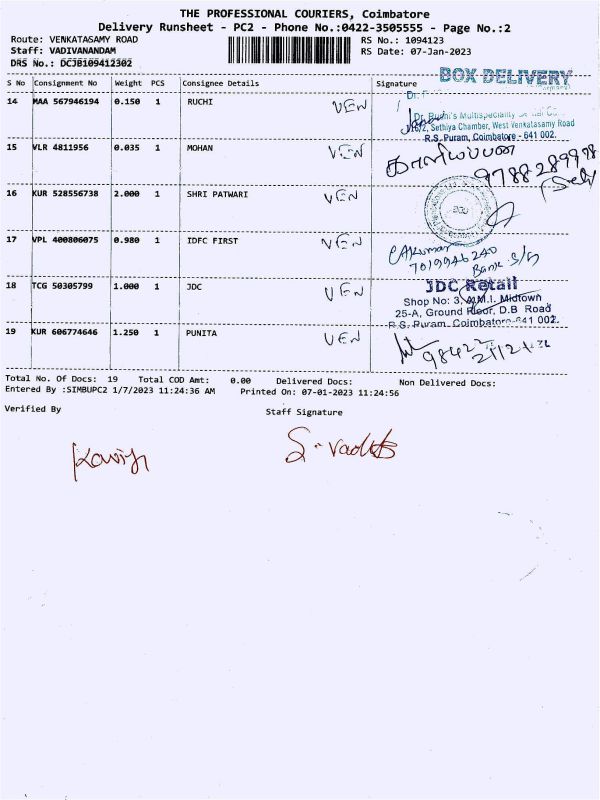 THE PROFESSIONAL COURIERS, Coimbatore
Delivery Runsheet - PC2 - Phone No.:0422-3505555 - Page No.:2
Route: VENKATASAMY ROAD RS No.: 1094123
Staff: VADIVANANDAM RS Date: 07-Jan-2023
DRS No.: DCJB109412302
BOX DELIVERY
S No Consignment No Weight PCS Consignee Details Signature
14 MAA 567946194 0.150 1 RUCHI VEN
Dr. Ruchi's Multispeciality
Sethiya Chamber, West Venkatasamy Road
R.S. Puram, Coimbatore - 641 002.
15 VLR 4811956 0.035 1 MOHAN VEN
9788289978
16 KUR 528556738 2.000 1 SHRI PATWARI VEN
17 VPL 400806075 0.980 1 IDFC FIRST VEN
7019946240
Bank S/G
18 TCG 50305799 1.000 1 JDC VEN
JDC Retail
Shop No: 3, A.M.I. Midtown
25-A, Ground Floor, D.B Road
R.S. Puram, Coimbatore-641 002.
19 KUR 606774646 1.250 1 PUNITA VEN
Total No. Of Docs: 19 Total COD Amt: 0.00 Delivered Docs: Non Delivered Docs:
Entered By :SIMBUPC2 1/7/2023 11:24:36 AM Printed On: 07-01-2023 11:24:56
Verified By Staff Signature